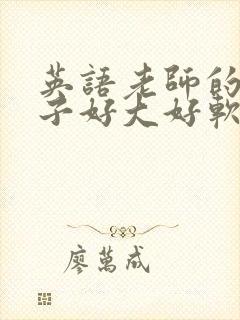 英語老師的
子好大好軟
廖萬成